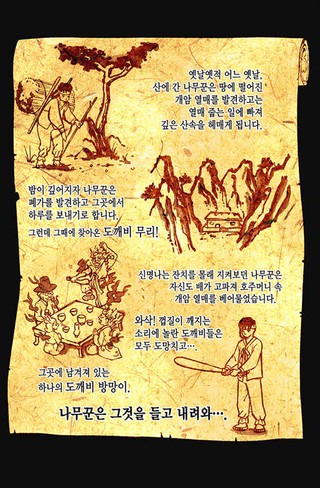 옛날옛적 어느 옛날.
산에 간 나무꾼은 땅에 떨어진
개암 열매를 발견하고는
열매 줍는 일에 빠져
깊은 산속을 헤매게 됩니다.
밤이 깊어지자 나무꾼은
폐가를 발견하고 그곳에서
하루를 보내기로 합니다.
그런데 그때에 찾아온 도깨비 무리!
신명나는 잔치를 몰래 지켜보던 나무꾼은
자신도 배가 고파져 호주머니 속
개암 열매를 베어물었습니다.
와삭! 껍질이 깨지는
소리에 놀란 도깨비들은
모두 도망치고….
그곳에 남겨져 있는
하나의 도깨비 방망이.
나무꾼은 그것을 들고 내려와….